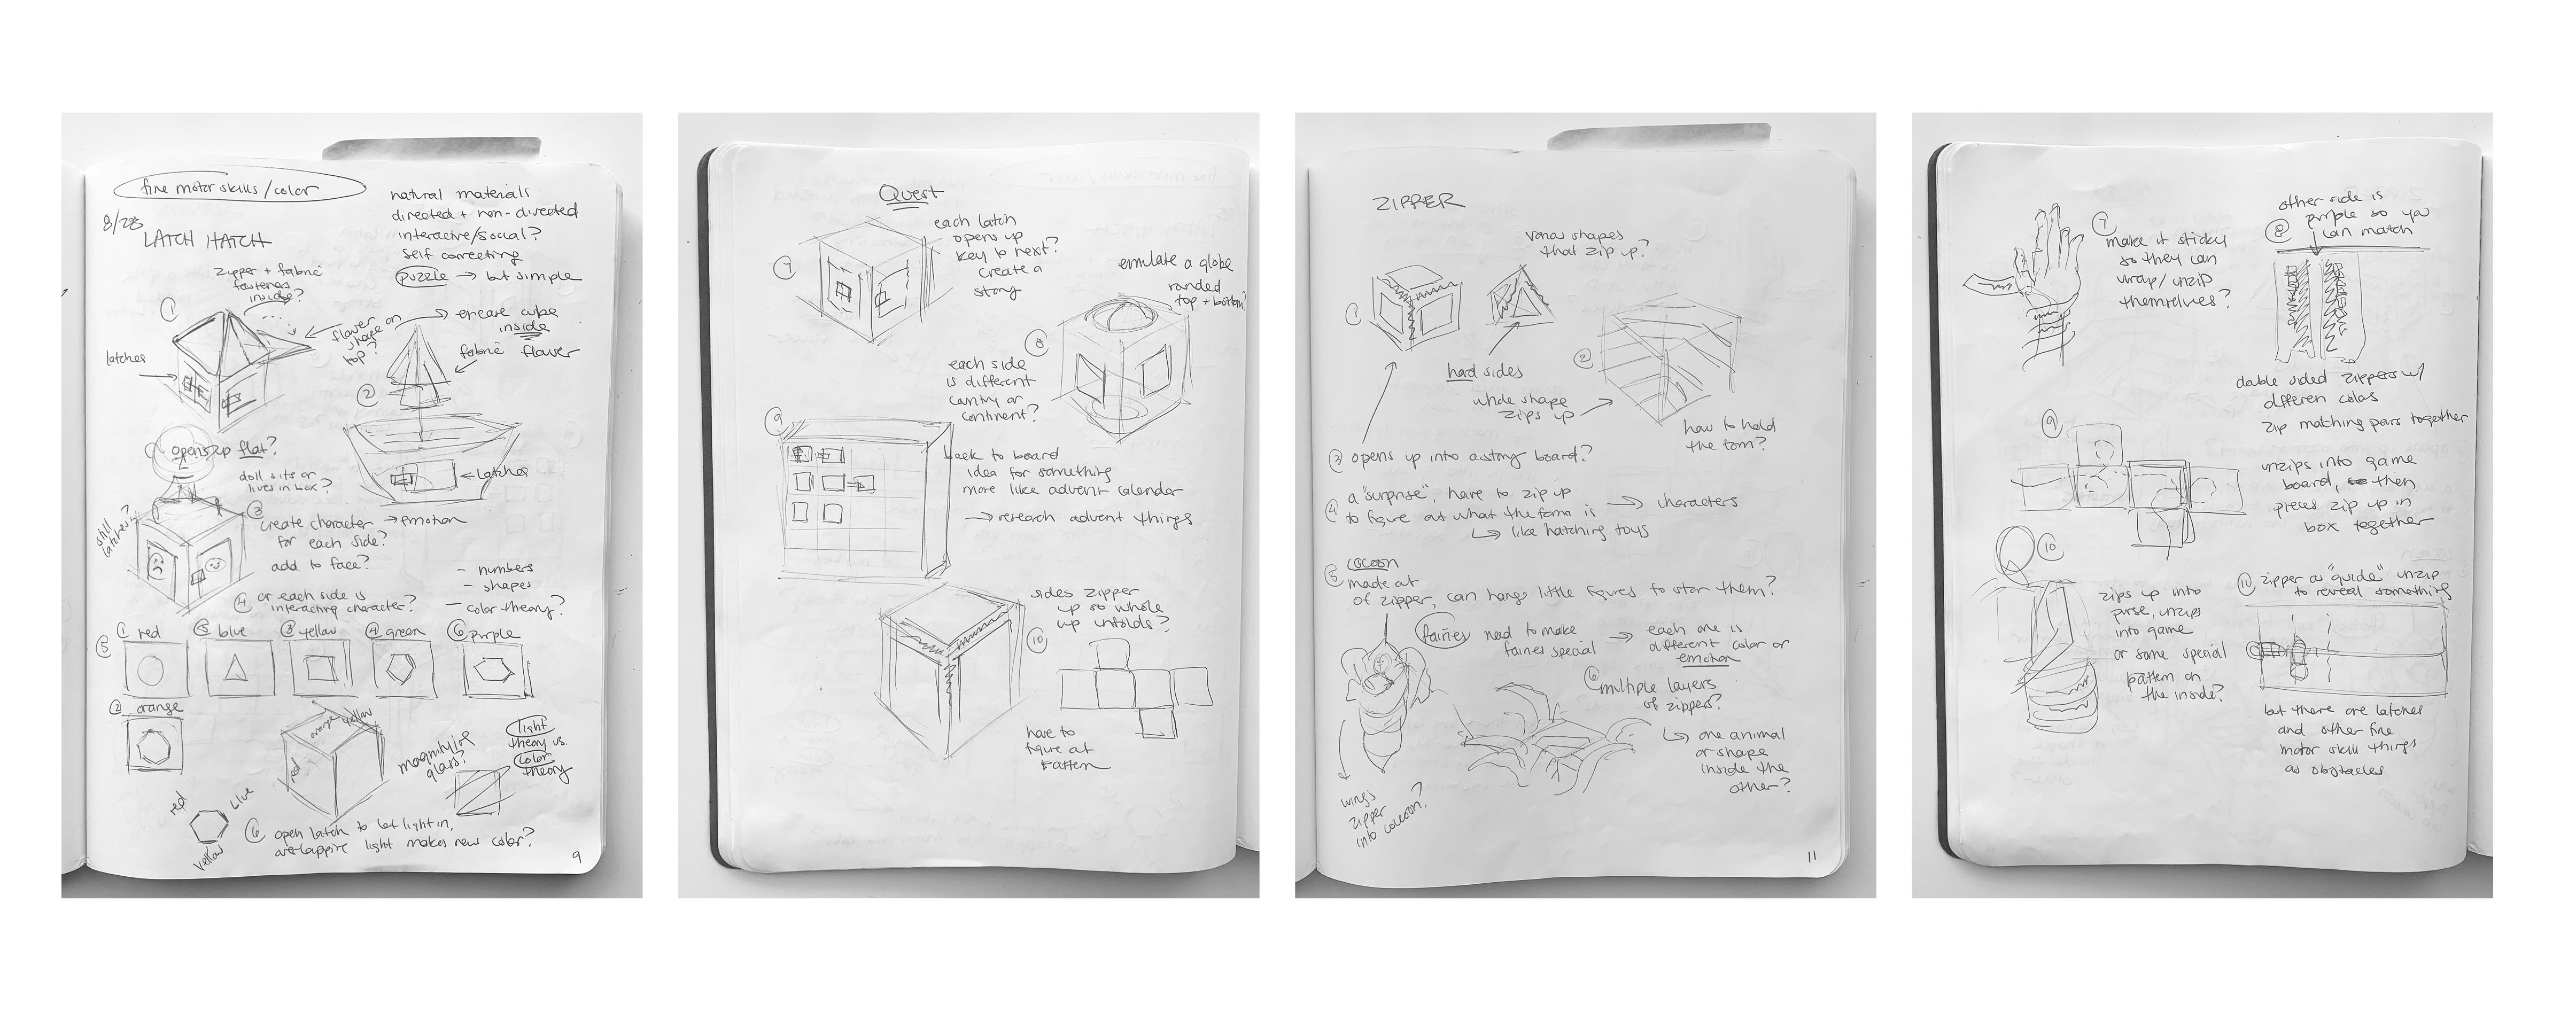 fine motor skills/color
8/28
LATCH HATCH
natural materials
directed + non-directed
interactive/social?
self correcting
puzzle → but simple
zipper + fabric
fasteners
inside?
①
latches
flower
shape on
top?
→ encase cube
inside
fabric flower
②
← latches
opens up flat?
doll sits or
lives in box?
still
latches?
③
create character → emotion
for each side?
add to face?
④ or each side is
interacting character?
- numbers
- shapes
- color theory?
⑤
① red
⑤ blue
③ yellow
④ green
⑥ purple
② orange
orange
yellow
red
magnifying
glass?
light
theory vs.
color
theory
red
blue
yellow
⑥ open latch to let light in,
overlapping light makes new color?
9
Quest
⑦
each latch
opens up
key to next?
create a
story
emulate a globe
rounded
top + bottom?
⑧
each side
is different
country or
continent?
⑨
back to board
idea for something
more like advent calender
→ research advent things
sides zipper
up so whole
up unfolds?
⑩
have to
figure out
pattern
ZIPPER
various shapes
that zip up?
①
hard sides
②
whole shape
zips up
how to hold
the form?
③ opens up into a story board?
④ a "surprise", have to zip up
to figure out what the form is → characters
↳ like hatching toys
⑤ cocoon
made out
of zipper, can hang little figures to store them?
fairies need to make
fairies special
→ each one is
different color or
emotion
⑥ multiple layers
of zippers?
↳ one animal
or shape
inside the
other?
wings
zipper
into cocoon?
11
⑦
make it sticky
so they can
wrap/unzip
themselves?
other side is
purple so you
can match
⑧
double sided zippers w/
different colors
zip matching pairs together
⑨
unzips into game
board, then
pieces zip up in
box together
⑩
zips up into
purse, unzips
into game
or some special
pattern on
the inside?
⑪ zipper as "guide" unzip
to reveal something
but there are latches
and other fine
motor skill things
as obstacles